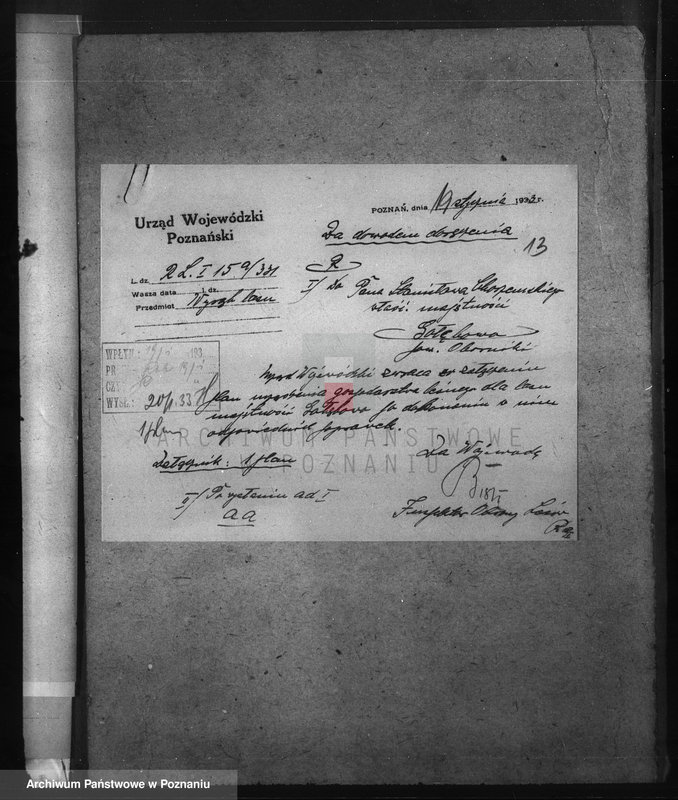 Urząd Wojewódzki
Poznański
POZNAŃ, dnia 19 stycznia 1933 r.
Za dowodem doręczenia
13
L. dz. RL. I 15 a/33
Wasza data l. dz.
Przedmiot
I/ Do Pana Stanisława
właśc. majętności
Gołębowo
pow. Obornicki
WPŁYN.
PR
CZ
WYSŁ. 20/I 33
1 plan
Urząd Wojewódzki zwraca w załączeniu
plan urządzenia gospodarstwa leśnego dla lasu
majętności po dokonaniu w nim
odpowiednich poprawek.
Załącznik: 1 plan
Za Wojewodę
B 18/I
Inspektor Ochrony Lasów
II/ Po wysłaniu ad I
aa
ARCHIWUM PAŃSTWOWE
W POZNANIU
Archiwum Państwowe w Poznaniu